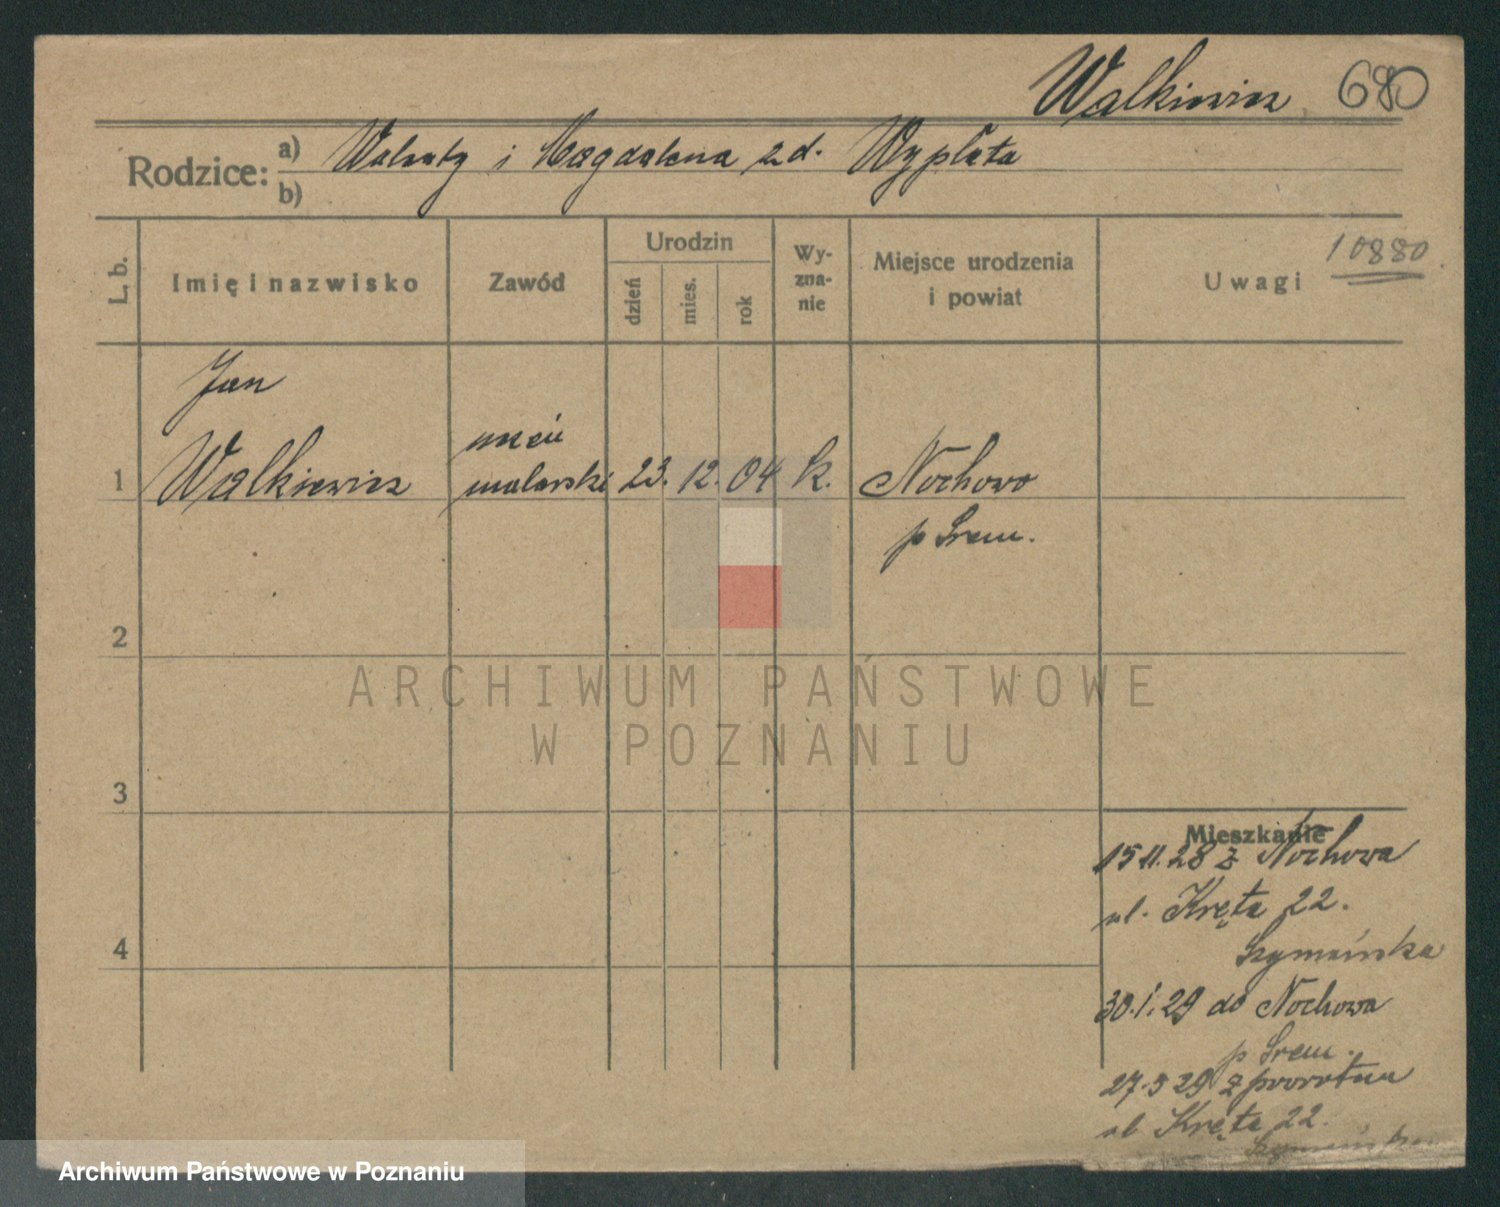 Walkiewicz 680
Rodzice: a) Walenty i Magdalena z d. Wypłata
b)
L. b.
Imię i nazwisko
Zawód
Urodzin
dzień
mies.
rok
Wy-
zna-
nie
Miejsce urodzenia
i powiat
10880
Uwagi
Jan
uczeń
1 Walkiewicz malarski 23. 12. 04 k. Nochowo
p Śrem.
2
ARCHIWUM PAŃSTWOWE
W POZNANIU
3
Mieszkanie
15 11. 28 z Nochowa
ul. Kręta 22.
4
Szymańska
30.1.29 do Nochowa
p Śrem.
27.3 29 z powrotem
ul Kręta 22.
Szymańska
Archiwum Państwowe w Poznaniu